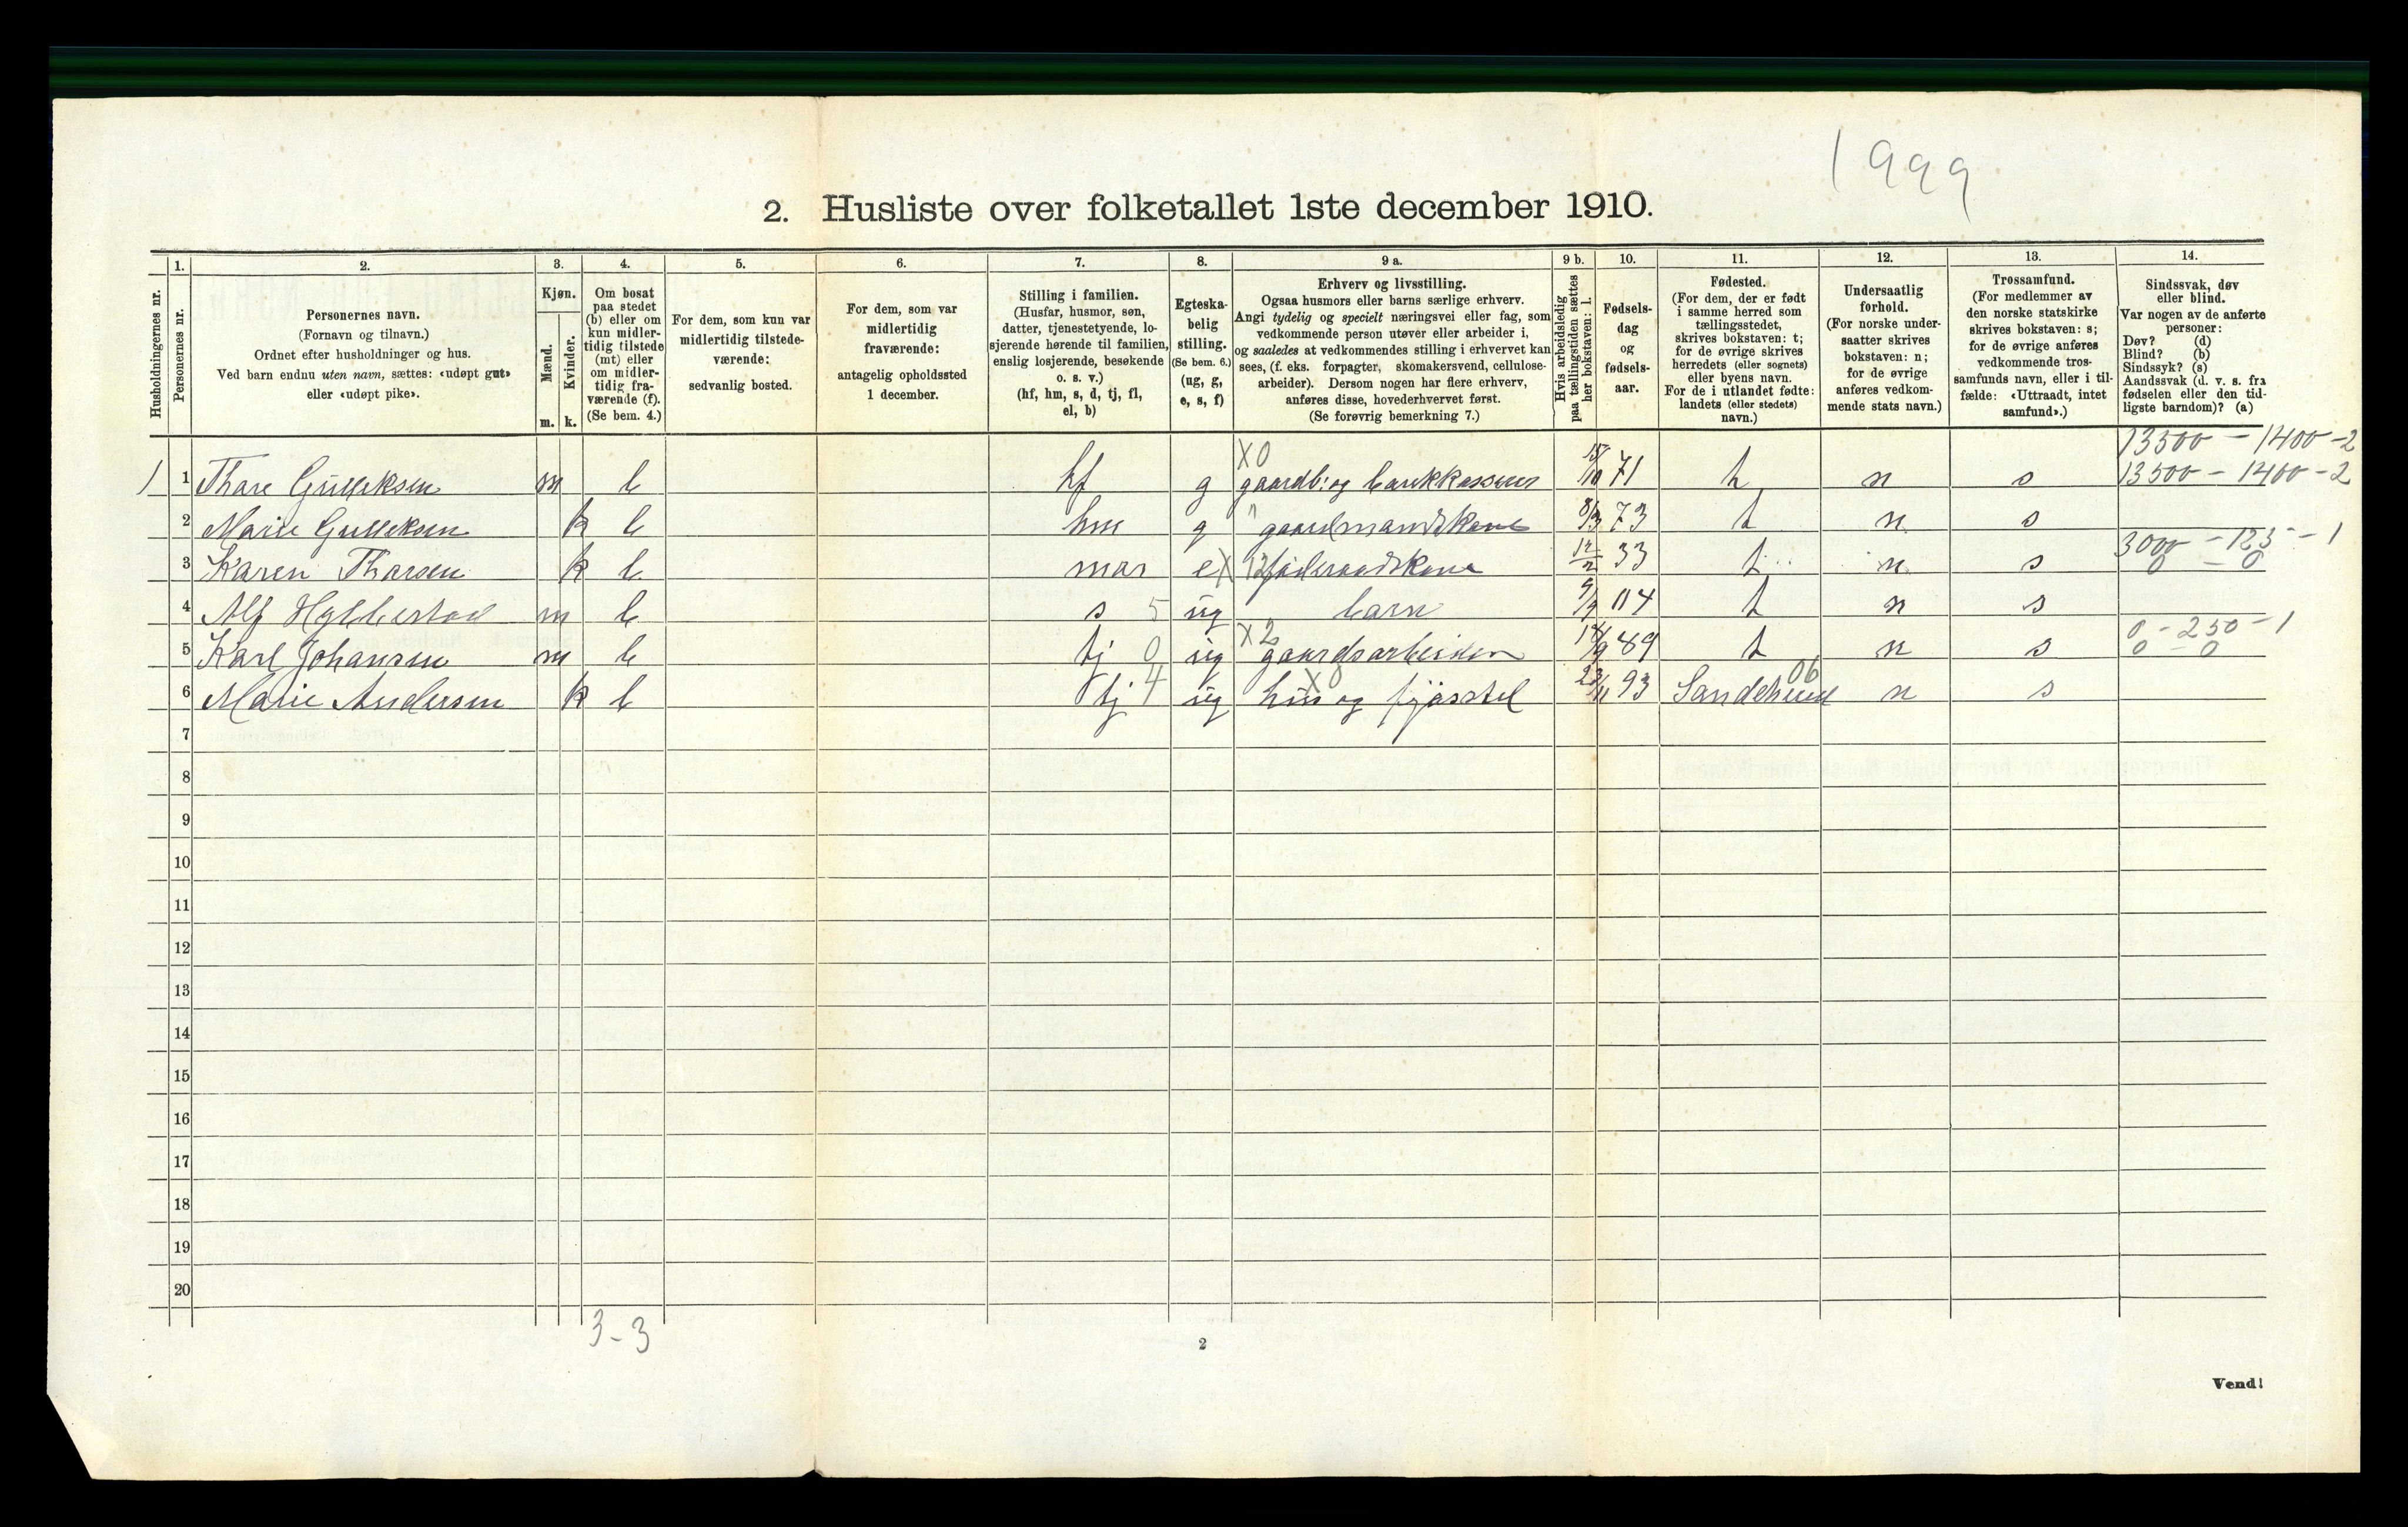 1999
2. Husliste over folketallet 1ste december 1910.
Husholdningernes nr.
1.
Personernes nr.
2.
Personernes navn.
(Fornavn og tilnavn.)
Ordnet efter husholdninger og hus.
Ved barn endnu uten navn, sættes: «udøpt gut»
eller «udøpt pike».
3.
Kjøn.
Mænd.
Kvinder.
m. k.
4.
Om bosat
paa stedet
(b) eller om
kun midler-
tidig tilstede
(mt) eller
om midler-
tidig fra-
værende (f).
(Se bem. 4.)
5.
For dem, som kun var
midlertidig tilstede-
værende:
sedvanlig bosted.
6.
For dem, som var
midlertidig
fraværende:
antagelig opholdssted
1 december.
7.
Stilling i familien.
(Husfar, husmor, søn,
datter, tjenestetyende, lo-
sjerende hørende til familien,
enslig losjerende, besøkende
o. s. v.)
(hf, hm, s, d, tj, fl,
el, b)
8.
Egteska-
belig
stilling.
(Se bem. 6.)
(ug, g,
e, s, f)
9 a.
Erhverv og livsstilling.
Ogsaa husmors eller barns særlige erhverv.
Angi tydelig og specielt næringsvei eller fag, som
vedkommende person utøver eller arbeider i,
og saaledes at vedkommendes stilling i erhvervet kan
sees, (f. eks. forpagter, skomakersvend, cellulose-
arbeider). Dersom nogen har flere erhverv,
anføres disse, hovederhvervet først.
(Se forøvrig bemerkning 7.)
9 b.
Hvis arbeidsledig
paa tællingstiden sættes
her bokstaven: l.
10.
Fødsels-
dag
og
fødsels-
aar.
11.
Fødested.
(For dem, der er født
i samme herred som
tællingsstedet,
skrives bokstaven: t;
for de øvrige skrives
herredets (eller sognets)
eller byens navn.
For de i utlandet fødte:
landets (eller stedets)
navn.)
12.
Undersaatlig
forhold.
(For norske under-
saatter skrives
bokstaven: n;
for de øvrige
anføres vedkom-
mende stats navn.)
13.
Trossamfund.
(For medlemmer av
den norske statskirke
skrives bokstaven: s;
for de øvrige anføres
vedkommende tros-
samfunds navn, eller i til-
fælde: «Uttraadt, intet
samfund».)
14.
Sindssvak, døv
eller blind.
Var nogen av de anførte
personer:
Døv? (d)
Blind? (b)
Sindssyk? (s)
Aandssvak (d. v. s. fra
fødselen eller den tid-
ligste barndom)? (a)
X0 13500 - 1400 - 2
1 1 Thore Gulleksen m b hf g gaardb: og bankkasserer 15/10 71 t n s 13500 - 1400 - 2
2 Marie Gulleksen k b hm g " gaardmandskone 8/3 73 t n s
3000 - 125 - 1
3 Karen Thorsen k b mor e X føderaadskone 12/2 33 t n s 0 - 0
4 Alf Hybbestad m b s 5 ug barn 9/9 04 t n s
X2 0 - 250 - 1
5 Karl Johansen m b tj 0 ug gaardsarbeider 14/9 89 t n s 0 - 0
X0 06
6 Marie Andersen k b tj 4 ug hus og fjøsstel 23/11 93 Sandeherred n s
7
8
9
10
11
12
13
14
15
16
17
18
19
20
3-3
2
Vend!